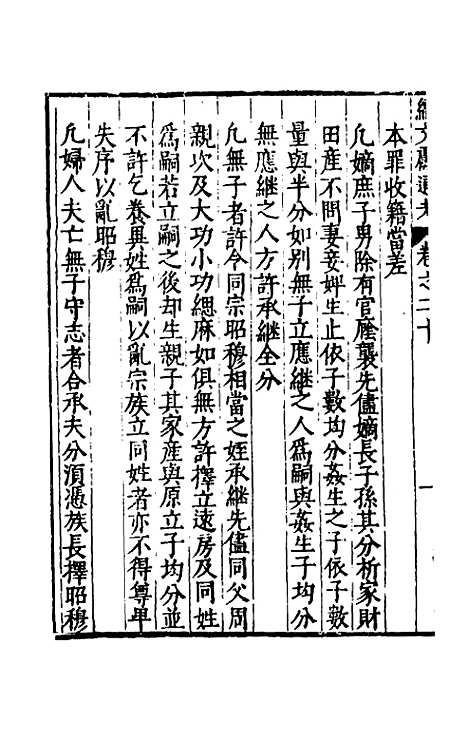 續文獻通考 卷之二十 一
本罪收籍當差
凡嫡庶子男除有官廕襲先儘嫡長子孫其分析家財
田産不問妻妾婢生止依子數均分姦生之子依子數
量與半分如别無子立應繼之人爲嗣與姦生子均分
無應繼之人方許承繼全分
凡無子者許令同宗昭穆相當之姪承繼先儘同父周
親次及大功小功緦麻如俱無方許擇立遠房及同姓
爲嗣若立嗣之後却生親子其家産與原立子均分並
不許乞養異姓爲嗣以亂宗族立同姓者亦不得尊卑
失序以亂昭穆
凡婦人夫亡無子守志者合承夫分湏憑族長擇昭穆